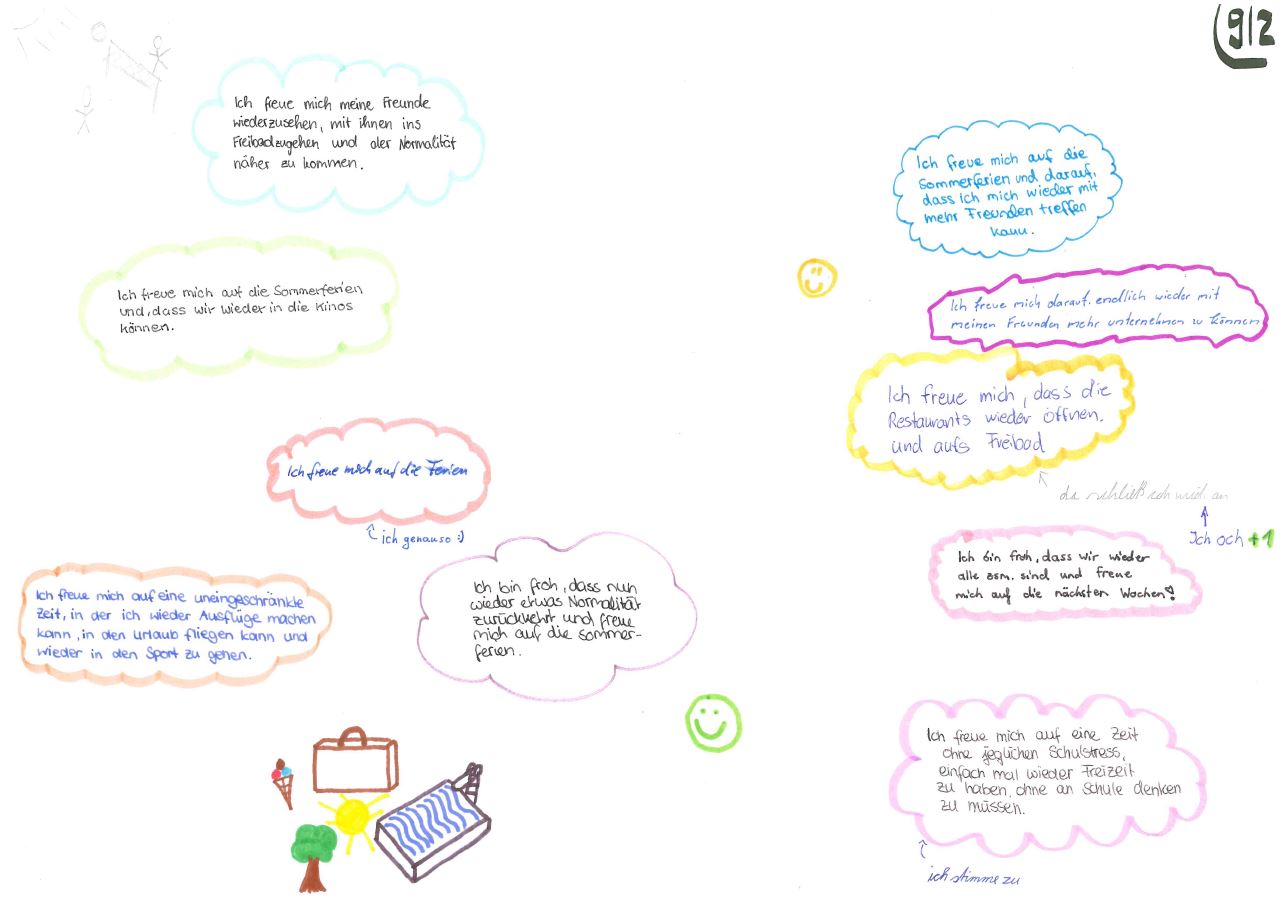 9/2
Ich freue mich meine Freunde
wiederzusehen, mit ihnen ins
Freibadzugehen und der Normalität
näher zu kommen.
Ich freue mich auf die Sommerferien
und, dass wir wieder in die Kinos
können.
Ich freue mich auf die Ferien
ich genauso :)
Ich freue mich auf eine uneingeschränkte
Zeit, in der ich wieder Ausflüge machen
kann, in den Urlaub fliegen kann und
wieder in den Sport zu gehen.
Ich bin froh, dass nun
wieder etwas Normalität
zurückkehrt und freue
mich auf die Sommer-
ferien.
Ich freue mich auf die
Sommerferien und darauf,
dass ich mich wieder mit
mehr Freunden treffen
kann.
Ich freue mich darauf, endlich wieder mit
meinen Freunden mehr unternehmen zu können
Ich freue mich, dass die
Restaurants wieder öffnen.
und aufs Freibad
da schließ ich mich an
Ich och +1
Ich bin froh, dass wir wieder
alle zsm. sind und freue
mich auf die nächsten Wochen!
Ich freue mich auf eine Zeit
ohne jeglichen Schulstress,
einfach mal wieder Freizeit
zu haben, ohne an Schule denken
zu müssen.
ich stimme zu